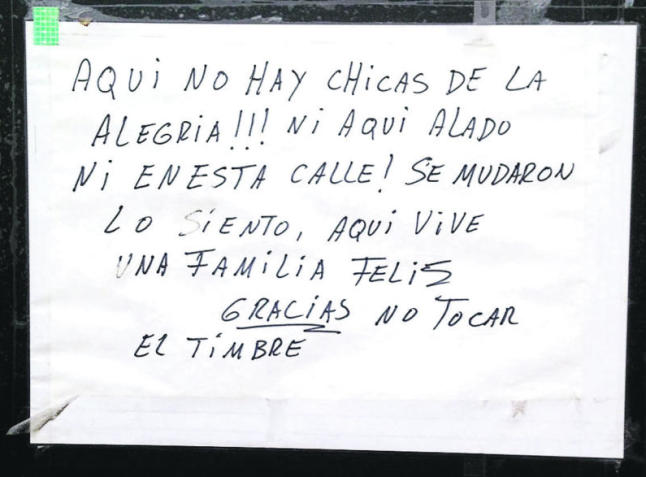 AQUi NO HAY CHICAS DE LA
ALEGRIA!!! Ni AQUI ALADO
Ni EN ESTA CALLE! SE MUDARON
LO SiENTO, AQUi ViVE
UNA FAMiLiA FELiS
GRACiAS NO TOCAR
EL TiMBRE